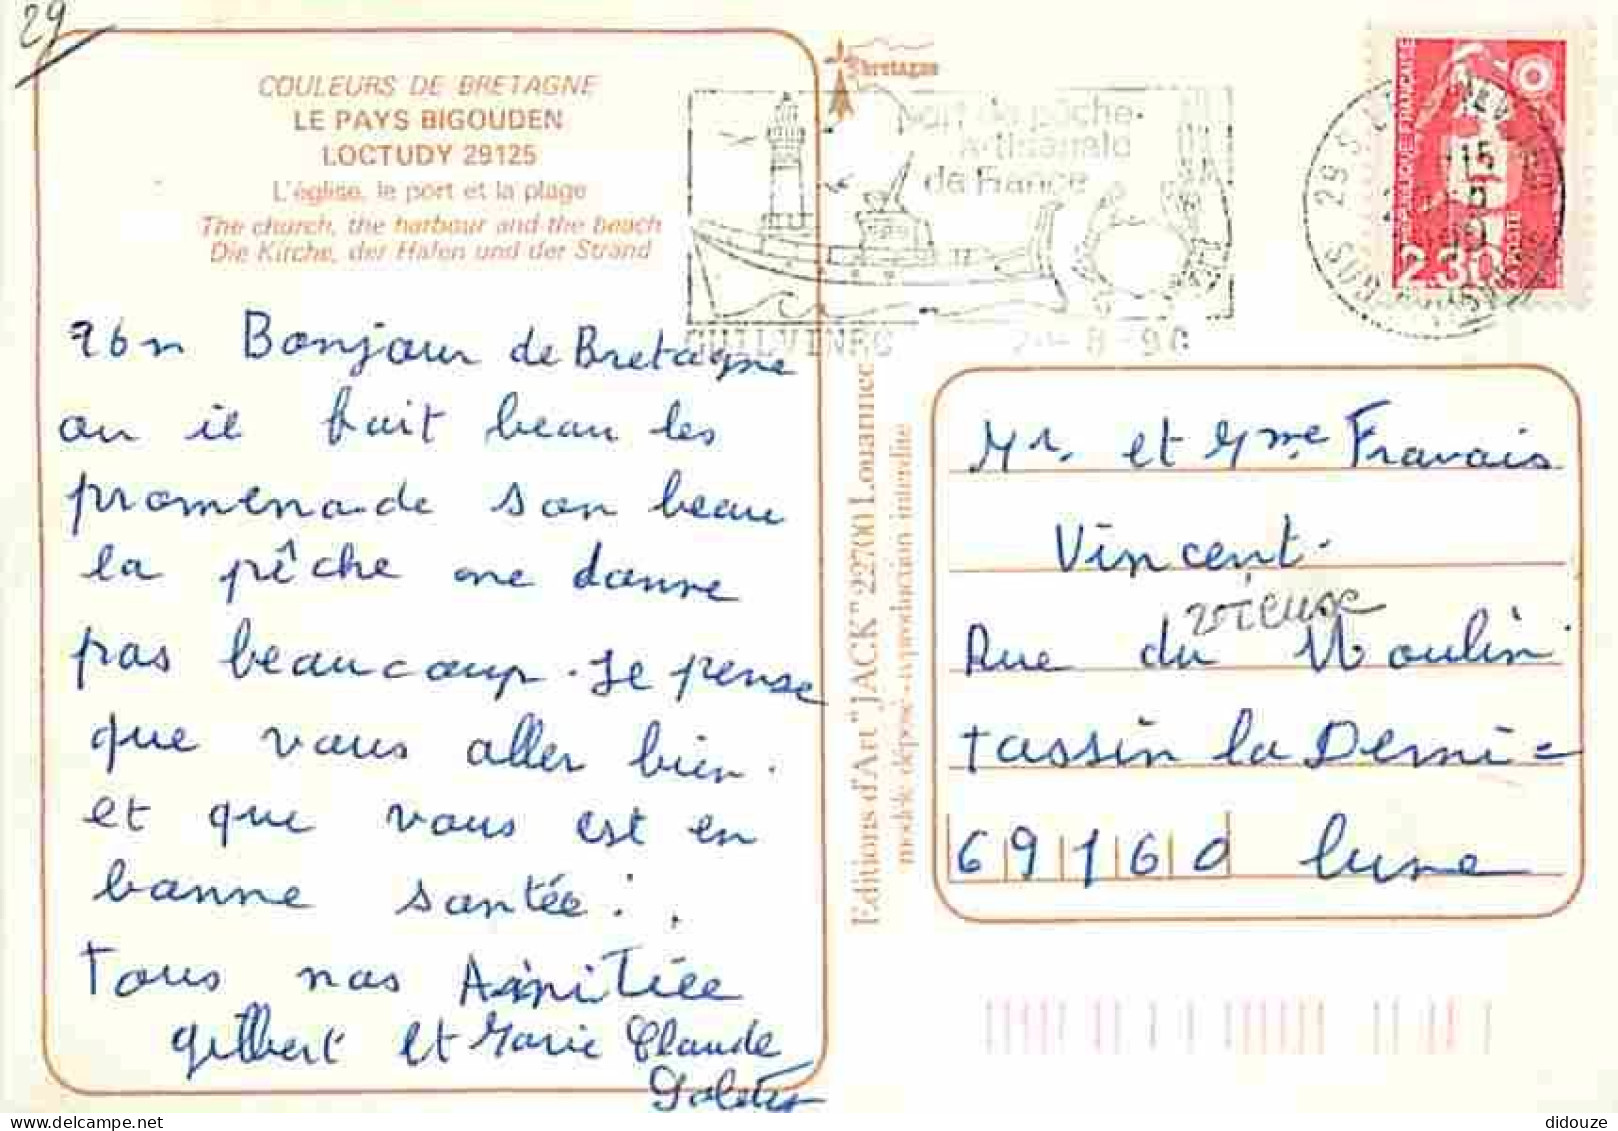 29
COULEURS DE BRETAGNE
LE PAYS BIGOUDEN
LOCTUDY 29125
L'église, le port et la plage
The church, the harbour and the beach
Die Kirche, der Hafen und der Strand
Bretagne
port de pêche
Artisanale
de France
-8-90
RÉPUBLIQUE FRANÇAISE
2.30
LA POSTE
Bonjour de Bretagne
ou il fait beau les
promenade son beau
la pêche me donne
pas beaucoup. Je pense
que vous aller bien.
et que vous est en
bonne santée.
Tous nos Amitiée
Gilbert et Marie Claude
Editions d'Art "JACK" 22700 Louannec
modèle déposé - reproduction interdite
Mr. et Mme Fravais
Vincent.
vieuse
Rue du Moulin
tassin la Demi=
69160 lune
didouze